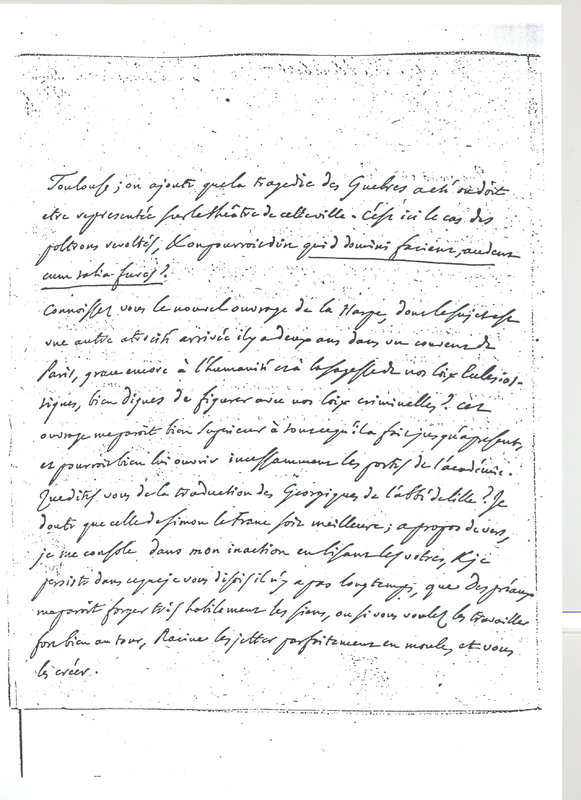 Toulouse; on ajoute que la tragedie des Guebres a eté ou doit
etre representée sur le théâtre de cette ville. C'est ici le cas des
poltrons revoltés, & on pourroit dire quid domini facient, audent
cum talia fures?
Connoissez vous le nouvel ouvrage de la Harpe, dont le sujet est
une autre atrocité arrivée il y a deux ans dans un couvent de
Paris, grace encore à l'humanité et à la sagesse de nos loix Eclesias-
tiques, bien dignes de figurer avec nos loix criminelles? Cet
ouvrage me paroit bien superieur à tout ce qu'il a fait jusqu'à present,
et pourroit bien lui ouvrir incessamment les portes de l'académie.
Que dites vous de la traduction des Georgiques de l'abbé de lille? Je
doute que celle de simon le franc soit meilleure; a propos de vers,
je me console dans mon inaction en lisant les votres, & je
persiste dans ce que je vous disois il n'y a pas longtemps, que Despréaux
me paroit forger très habilement les siens, ou si vous voulez les travailler
fort bien au tour, Racine les jetter parfaitement en moule, et vous
les créer.